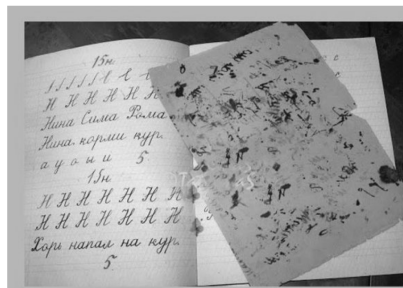 15н
Н Н Н Н Н Н
Нина Сима Рома
Нина корми кур.
а у о ы и 5
15н
Н Н Н Н Н Н Н
Н Н Н Н Н Н Н
Хорь напал на кур.
5.